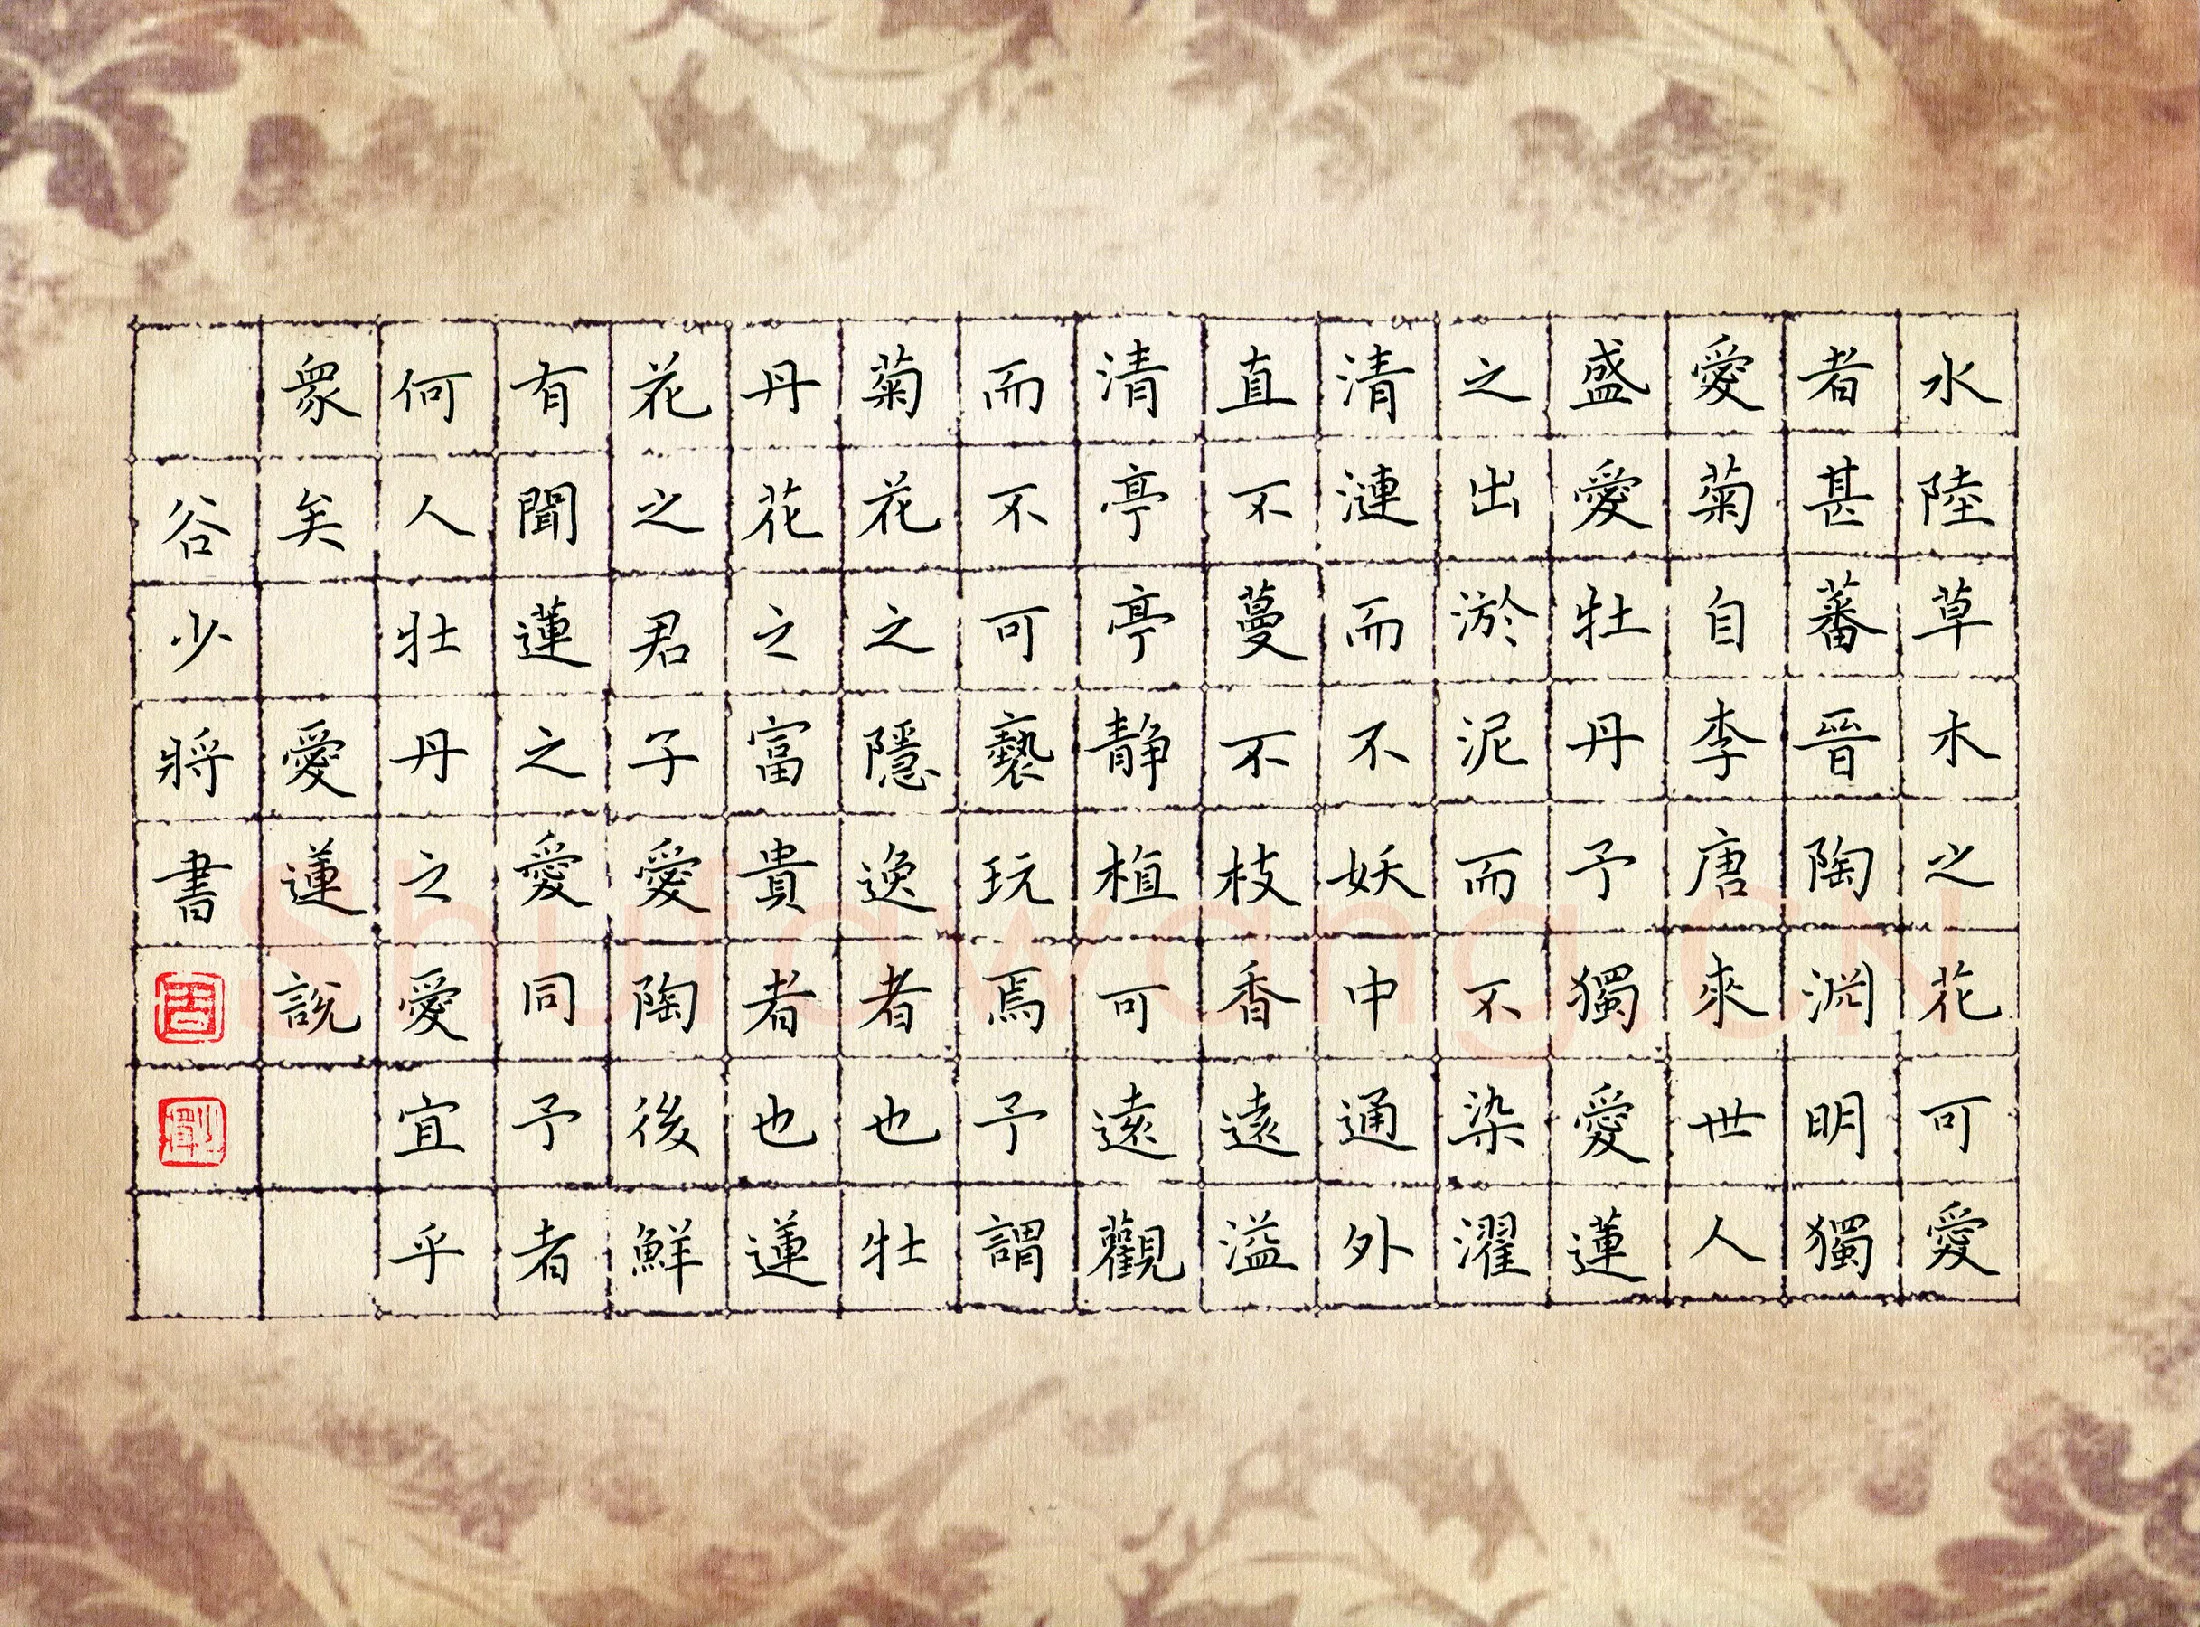 水陸草木之花可愛
者甚蕃晉陶淵明獨
愛菊自李唐來世人
盛愛牡丹予獨愛蓮
之出淤泥而不染濯
清漣而不妖中通外
直不蔓不枝香遠溢
清亭亭静植可遠觀
而不可褻玩焉予謂
菊花之隱逸者也牡
丹花之富貴者也蓮
花之君子愛陶後鮮
有聞蓮之愛同予者
何人牡丹之愛宜乎
眾矣 愛蓮說
谷少將書